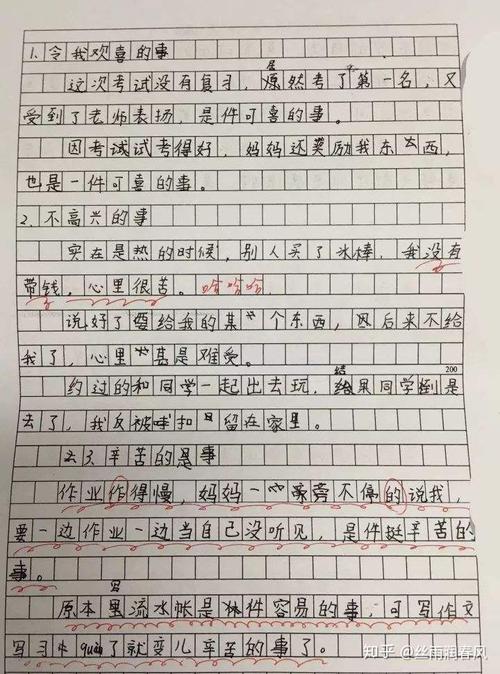 1.令我欢喜的事
这次考试没有复习，居然考了第一名，又
受到了老师表扬，是件可喜的事。
因考试试考得好，妈妈还奖励我东西，
也是一件可喜的事。
2.不高兴的事
实在是热的时候，别人买了冰棒，我没有
带钱，心里很苦。哈哈哈
说好了要给我的某个东西，因后来不给
我了，心里甚是难受。
约过的和同学一起出去玩，结果同学倒是
200
去了，我反被扣留在家里。
3.辛苦的事
作业作得慢，妈妈一旁不停的说我，
要一边作业一边当自己没听见，是件挺辛苦的
事。
原本写流水帐是件容易的事，可写作文
写习惯了就变儿辛苦的事了。
知乎 @丝雨润春风